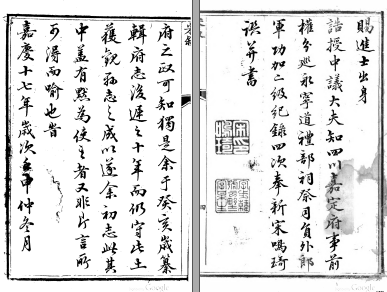 府之政可知獨是余于癸亥歲纂
輯府志後遲之十年而仍守此土
獲觀縣志之成以遂余初志此其
中蓋有默為使之者又非片言所
可得而喻也峕
嘉慶十七年歲次壬申仲冬月
賜進士出身
誥授中議大夫知四川嘉定府事前
權分巡永寧道禮部祠祭司員外郎
軍功加二級紀錄四次奉新宋鳴琦
譔并書